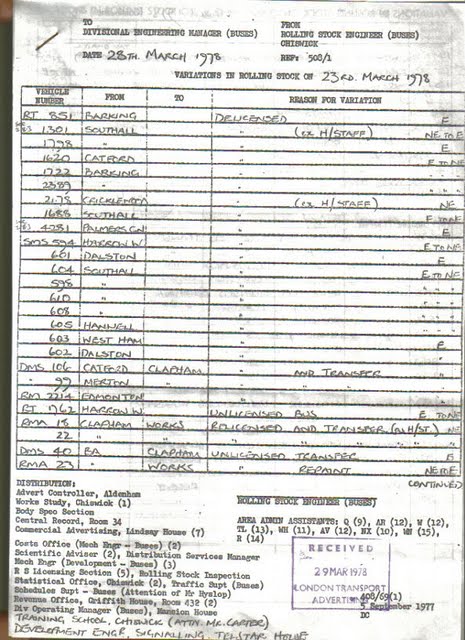 TO
DIVISIONAL ENGINEERING MANAGER (BUSES)
FROM
ROLLING STOCK ENGINEER (BUSES)
CHISWICK
DATE 28TH. MARCH 1978
REF: 508/1
VARIATIONS IN ROLLING STOCK ON 23RD. MARCH 1978
VEHICLE NUMBER FROM TO REASON FOR VARIATION
RT 851 BARKING DELICENSED E
1301 SOUTHALL " (ex H/STAFF) NE TO NE
1798 " " E
1620 CATFORD " E TO NE
1722 BARKING " "
2389 " " "
2178 CRICKLEWOOD " (ex H/STAFF) NE
1688 SOUTHALL " E TO NE
4281 PALMERS GN " E
SMS 594 HARROW W. " E TO NE
601 DALSTON " E
604 SOUTHALL " E TO NE
598 " " " " "
610 " " " " "
608 " " " " "
605 HANWELL " " " "
603 WEST HAM " E
602 DALSTON " "
DMS 106 CATFORD CLAPHAM " AND TRANSFER "
" 99 MERTON " " " "
RM 2214 EDMONTON "
RT 1762 HARROW W. UNLICENSED BUS E TO NE
RMA 18 CLAPHAM WORKS RELICENSED AND TRANSFER (ex H/ST.) NE
22 " " " " "
DMS 40 BA CLAPHAM UNLICENSED TRANSFER E
RMA 23 " WORKS " REPAINT NE TO E
CONTINUED
DISTRIBUTION:
Advert Controller, Aldenham
Works Study, Chiswick (1)
Body Spec Section
Central Record, Room 34
Commercial Advertising, Lindsay House (7)
Costs Office (Mech Engr - Buses) (2)
Scientific Adviser (2), Distribution Services Manager
Mech Engr (Development - Buses) (3)
R S Licensing Section (5), Rolling Stock Inspection
Statistical Office, Chiswick (2), Traffic Supt (Buses)
Schedules Supt - Buses (Attention of Mr Hyslop)
Revenue Office, Griffith House, Room 432 (2)
Div Operating Manager (Buses), Mansion House
TRAINING SCHOOL, CHISWICK (ATTN. MR. CARTER)
DEVELOPMENT ENGR, SIGNALLING, TELSTAR HOUSE
ROLLING STOCK ENGINEER (BUSES)
AREA ADMIN ASSISTANTS: Q (9), AR (12), W (12),
TL (13), WH (11), AV (12), NX (10), WN (15),
R (14)
RECEIVED
29 MAR 1978
LONDON TRANSPORT
408/69(1)
5 September 1977
DC